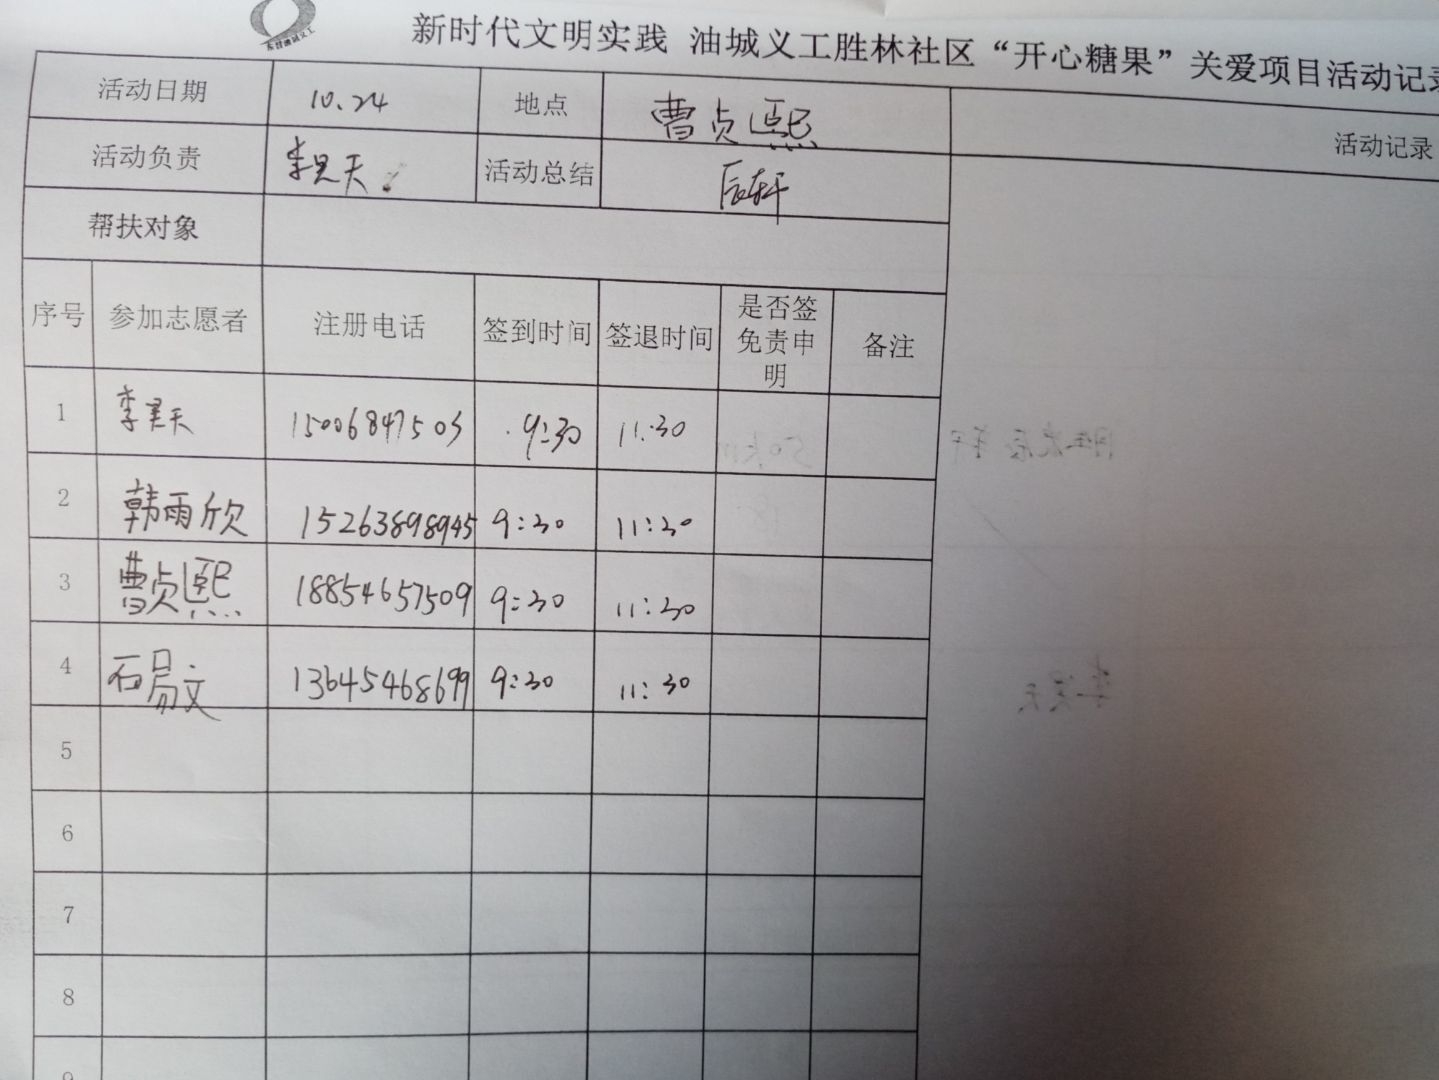 东营油城义工
新时代文明实践 油城义工胜林社区“开心糖果”关爱项目活动记录
活动日期 10.24 地点 曹贞熙 活动记录
活动负责 李昊天 活动总结 辰轩
帮扶对象
序号 参加志愿者 注册电话 签到时间 签退时间 是否签免责申明 备注
1 李昊天 15006847503 9:30 11:30
2 韩雨欣 15263898945 9:30 11:30
3 曹贞熙 18854657509 9:30 11:30
4 石易文 13645468699 9:30 11:30
5
6
7
8
9